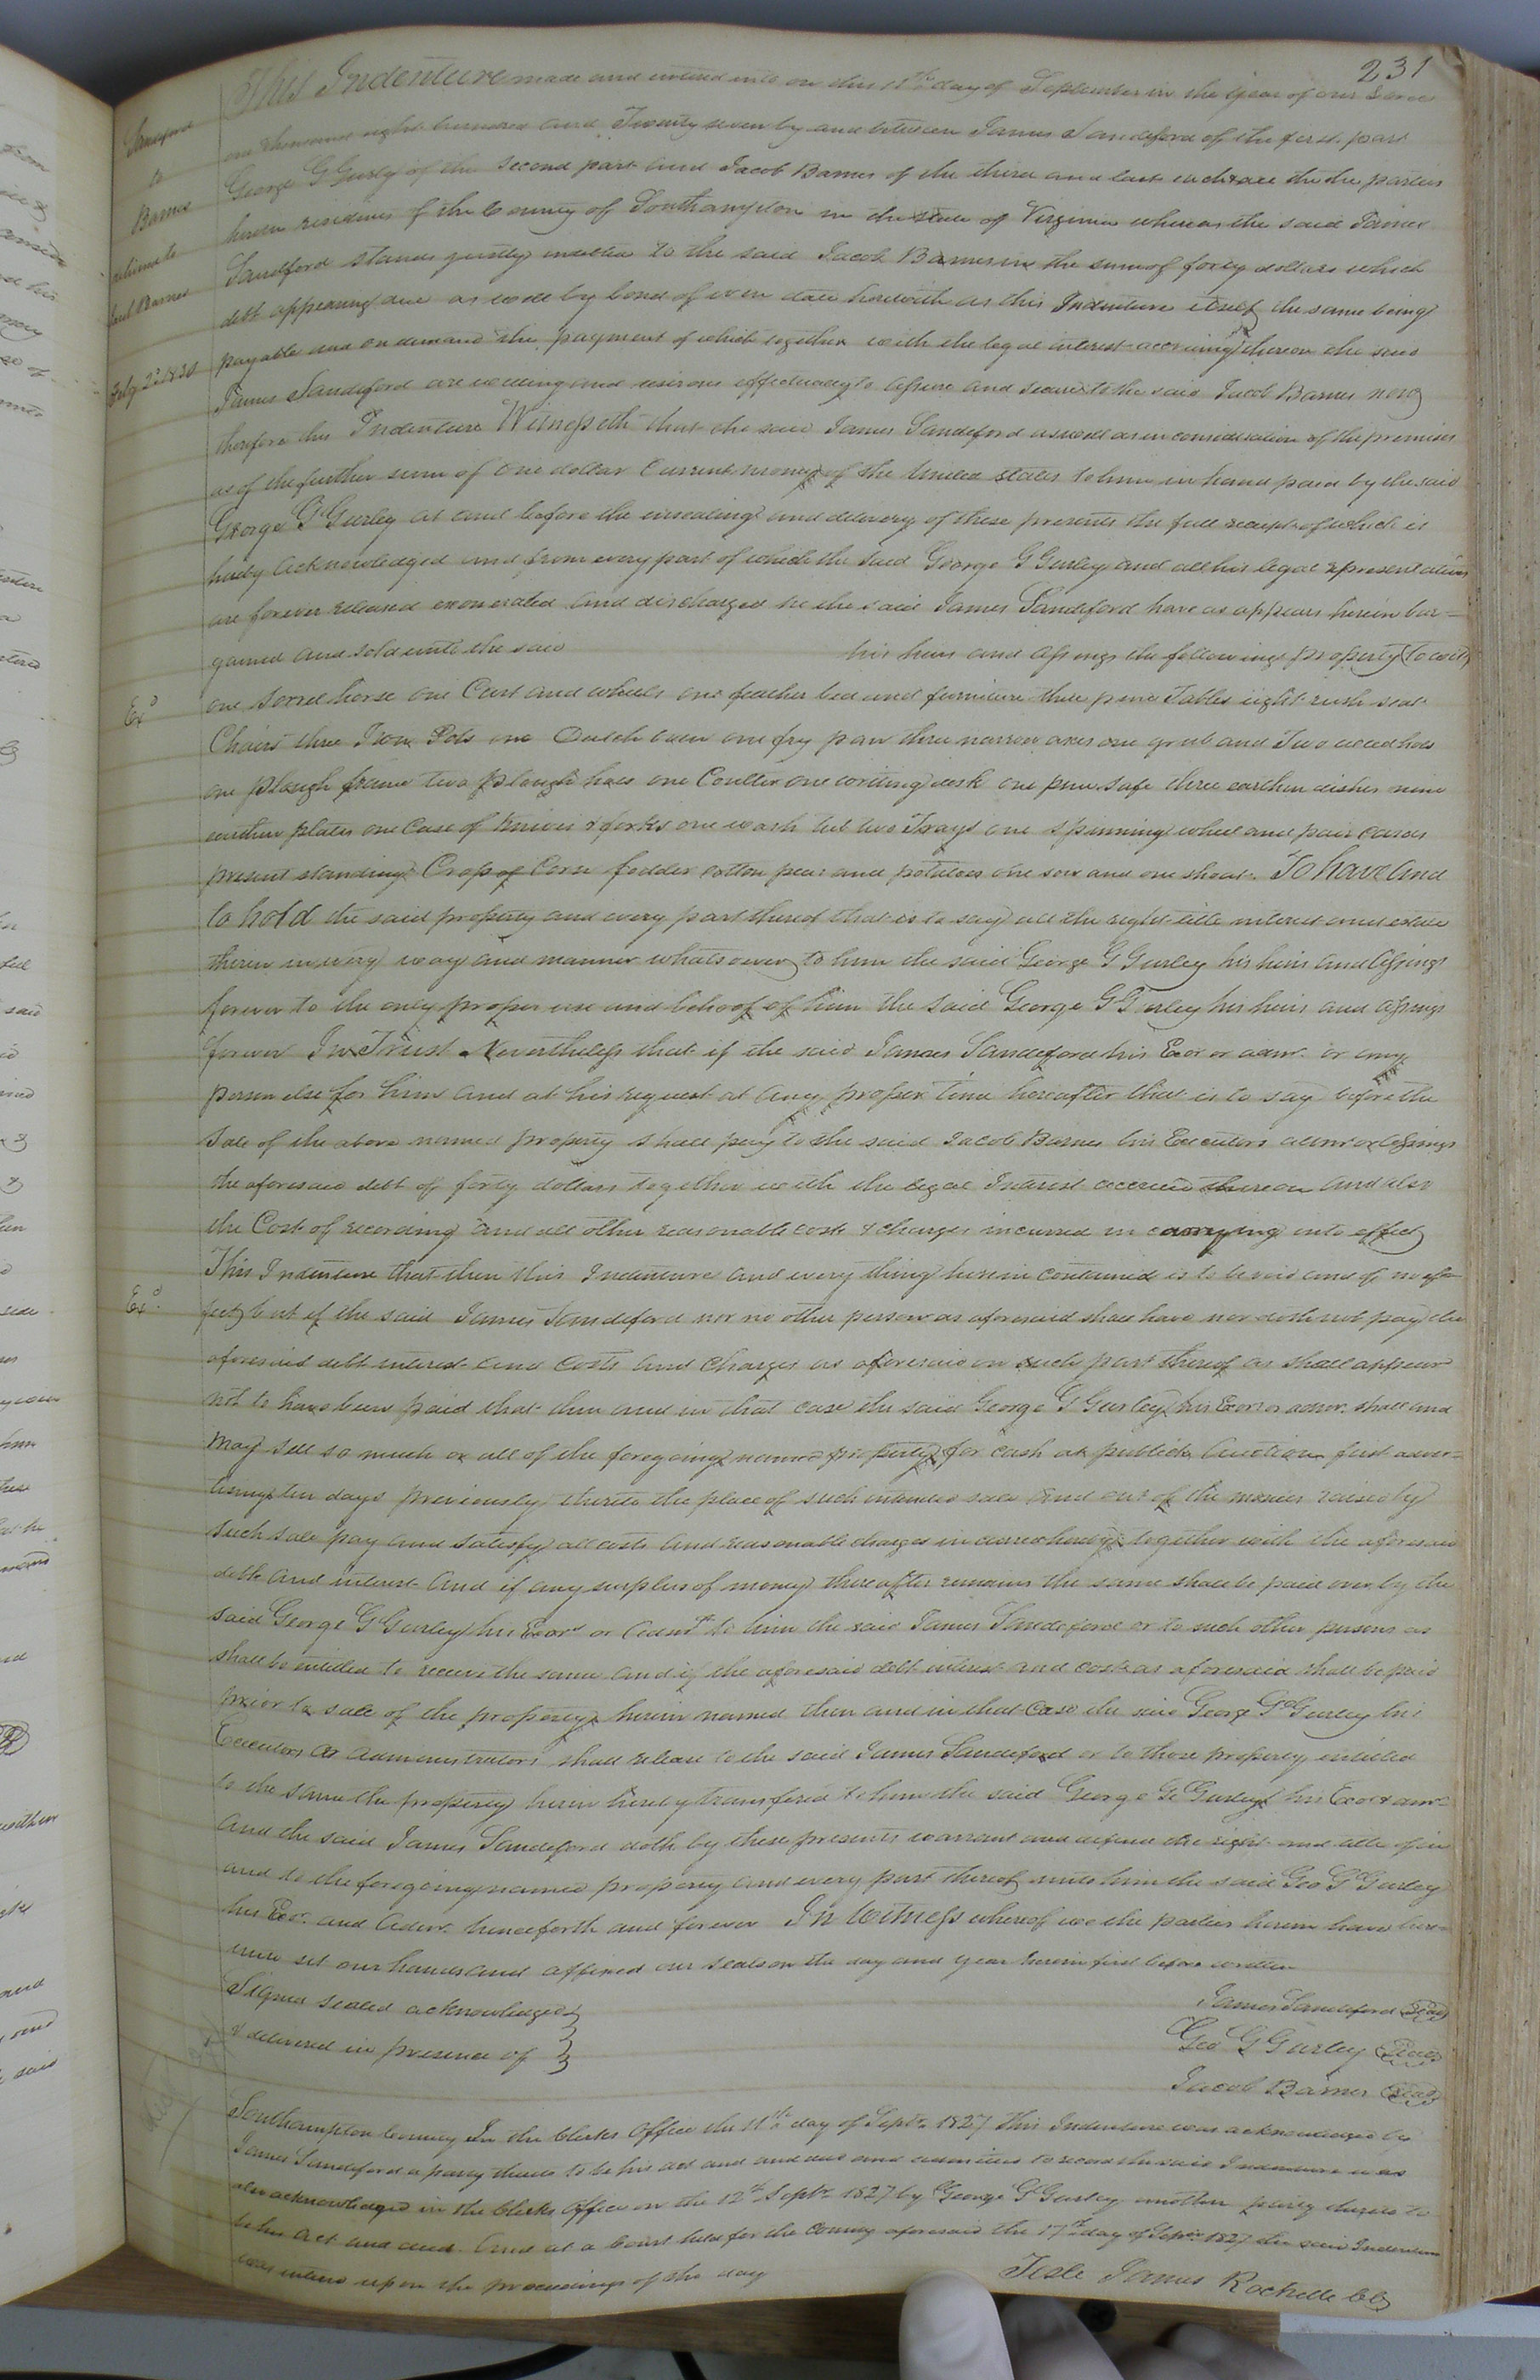 231
Sandeford
to
Barnes
delivered to
Jacob Barnes
Feby 2d 1830
This Indenture made and entered into on this 11th day of September in the year of our Lord
one thousand eight hundred and Twenty seven by and between James Sandeford of the first part
George G Gurley of the Second part and Jacob Barnes of the third and last and all the parties
herein residents of the County of Southampton in the state of Virginia whereas the said James
Sandford stands justly indebted to the said Jacob Barnes in the sum of forty dollars which
debt appearing due as well by bond of even date herewith as this Indenture itself the same being
payable and on demand the payment of which together with the legal interest accruing thereon the said
James Sandeford are willing and desirous effectually to assure and secure to the said Jacob Barnes now
therefore this Indenture Witnesseth that the said James Sandeford as well as in consideration of the premises
as of the further sum of one dollar Current money of the United states to him in hand paid by the said
George G Gurley at and before the ensealing and delivery of these presents the full receipt of which is
hereby acknowledged and from every part of which the said George G Gurley and all his legal representatives
are forever released exonerated and discharged he the said James Sandeford have as appears herein bar=
gained and sold unto the said his heirs and assigns the following property (to wit)
Exd
one sorrel horse one Cart and wheels one feather bed and furniture three pine Tables eight rush seat
Chairs three Iron Pots one Dutch oven one fry pan three narrow axes one grub and Two weed hoes
one plough frame two plough hoes one Coulter one writing desk one pine safe three earthen dishes nine
earthen plates one Case of knives & forks one wash tub two Trays one spinning wheel and pair cards
present standing Crop of Corn fodder cotton peas and potatoes one sow and one shoat. To have and
to hold the said property and every part thereof that is to say all the right title interest and estate
therein in every way and manner whatsoever to him the said George G Gurley his heirs and assigns
forever to the only proper use and behoof of him the said George G Gurley his heirs and assigns
forever In Trust Nevertheless that if the said James Sandeford his Exor or admr. or any
person else for him and at his request at any proper time hereafter that is to say before the
sale of the above named property shall pay to the said Jacob Barnes his Executors admr or assigns
the aforesaid debt of forty dollars together with the legal Interest accrued thereon and also
the Cost of recording and all other reasonable costs & charges incurred in carrying into effect
This Indenture that then this Indenture and every thing herein contained is to be void and of no ef=
Exd.
fect, but if the said James Sandeford nor no other person as aforesaid shall have nor doth not pay the
aforesaid debt interest and costs and charges as aforesaid or such part thereof as shall appear
not to have been paid that then and in that case the said George G Gurley his Exor. or admr. shall and
may sell so much or all of the foregoing named property for cash at public Auction first adver=
tising ten days previously thereto the place of such intended sale and out of the monies raised by
such sale pay and satisfy all costs and reasonable charges incurred hereby together with the aforesaid
debt and interest and if any surplus of money thereafter remains the same shall be paid over by the
said George G Gurley his Exors or admrs to him the said James Sandeford or to such other persons as
shall be entitled to receive the same and if the aforesaid debt interest and cost as aforesaid shall be paid
prior to sale of the property herein named then and in that case the said George G Gurley his
Executors or administrators shall release to the said James Sandeford or to those properly entitled
to the same the property herein hereby transfered to him the said George G Gurley his Exor & amr
And the said James Sandeford doth by these presents warrant and defend the right and title of in
and to the foregoing named property and every part thereof unto him the said Geo G Gurley
his Exor. and Admr. henceforth and forever In Witness whereof we the parties herein have here=
unto set our hands and affixed our seals on the day and year herein first before written
Signed sealed acknowledged
& delivered in presence of
James Sandeford Seal
Geo G Gurley Seal
Jacob Barnes Seal
Southampton County In the Clerks Office the 11th day of Septr. 1827 This Indenture was acknowledged by
James Sandeford a party thereto to be his act and deed and admitted to record the said Indenture was
also acknowledged in the Clerks Office on the 12th Septr. 1827 by George G Gurley another party thereto to
be his act and deed. And at a Court held for the County aforesaid the 17th day of Septr 1827 the said Indenture
was entered upon the proceedings of the day
Teste James Rochelle CC